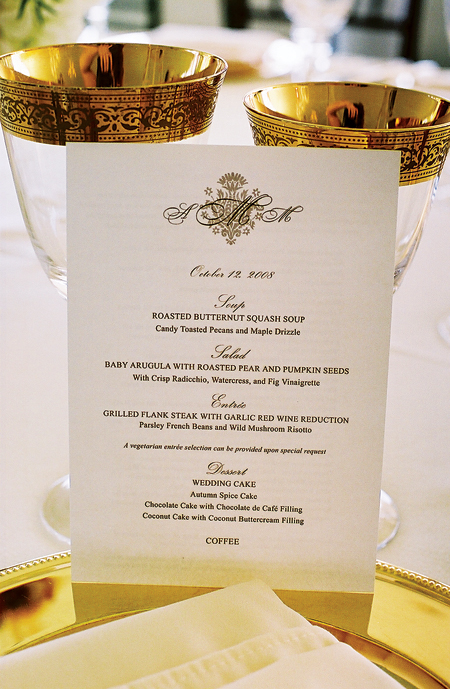 A M M
October 12, 2008
Soup
ROASTED BUTTERNUT SQUASH SOUP
Candy Toasted Pecans and Maple Drizzle
Salad
BABY ARUGULA WITH ROASTED PEAR AND PUMPKIN SEEDS
With Crisp Radicchio, Watercress, and Fig Vinaigrette
Entrée
GRILLED FLANK STEAK WITH GARLIC RED WINE REDUCTION
Parsley French Beans and Wild Mushroom Risotto
A vegetarian entrée selection can be provided upon special request
Dessert
WEDDING CAKE
Autumn Spice Cake
Chocolate Cake with Chocolate de Café Filling
Coconut Cake with Coconut Buttercream Filling
COFFEE